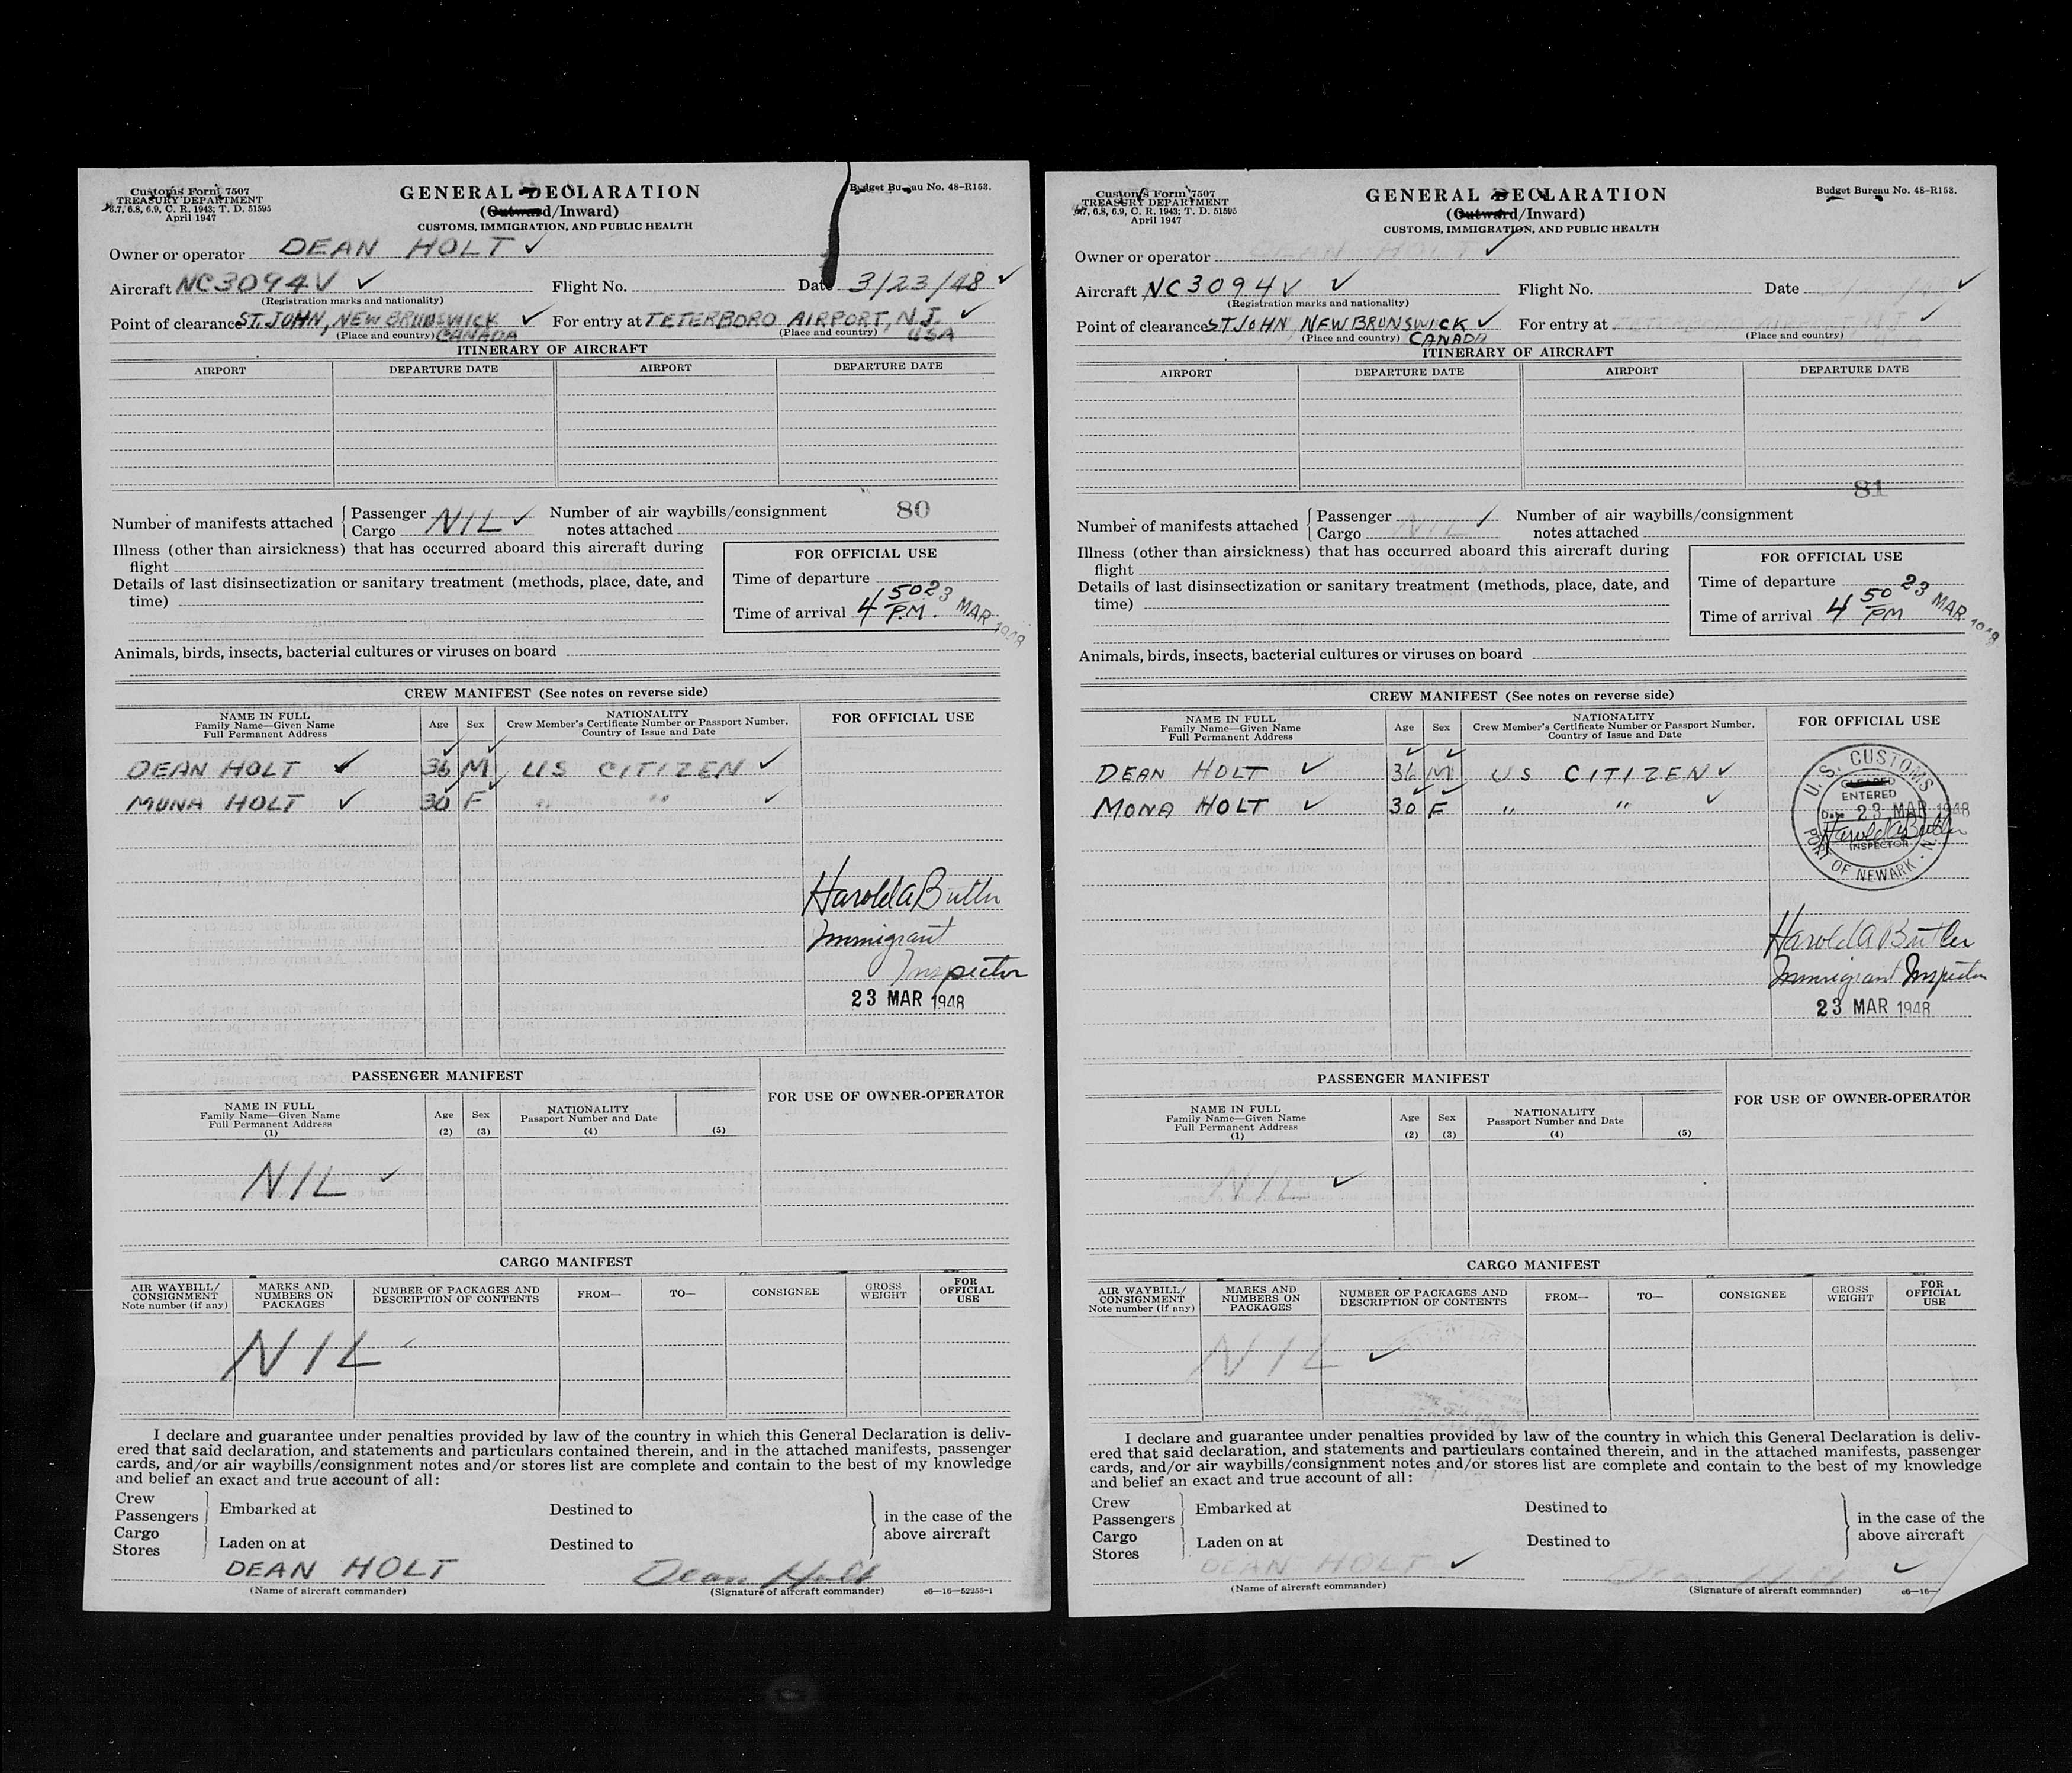 Customs Form 7507
TREASURY DEPARTMENT
6.7, 6.8, 6.9, C. R. 1943; T. D. 51595
April 1947
GENERAL DECLARATION
(Outward/Inward)
CUSTOMS, IMMIGRATION, AND PUBLIC HEALTH
Budget Bureau No. 48-R153.
Owner or operator DEAN HOLT ✓
Aircraft NC3094V ✓ Flight No. Date 3/23/48 ✓
(Registration marks and nationality)
Point of clearance ST. JOHN, NEW BRUNSWICK ✓ For entry at TETERBORO AIRPORT, N.J. ✓
(Place and country) CANADA (Place and country) USA
ITINERARY OF AIRCRAFT
AIRPORT DEPARTURE DATE AIRPORT DEPARTURE DATE
80
Number of manifests attached { Passenger NIL ✓ Number of air waybills/consignment
Cargo notes attached
Illness (other than airsickness) that has occurred aboard this aircraft during
flight
Details of last disinsectization or sanitary treatment (methods, place, date, and
time)
FOR OFFICIAL USE
Time of departure
Time of arrival 4 50 PM. 23 MAR 1948
Animals, birds, insects, bacterial cultures or viruses on board
CREW MANIFEST (See notes on reverse side)
NAME IN FULL
Family Name—Given Name
Full Permanent Address
Age Sex
NATIONALITY
Crew Member's Certificate Number or Passport Number,
Country of Issue and Date
FOR OFFICIAL USE
DEAN HOLT ✓ 36 M US CITIZEN ✓
MONA HOLT ✓ 30 F " " ✓
Harold A Butler
Immigrant
Inspector
23 MAR 1948
PASSENGER MANIFEST
NAME IN FULL
Family Name—Given Name
Full Permanent Address
(1)
Age
(2)
Sex
(3)
NATIONALITY
Passport Number and Date
(4)
(5)
FOR USE OF OWNER-OPERATOR
NIL ✓
CARGO MANIFEST
AIR WAYBILL/
CONSIGNMENT
Note number (if any)
MARKS AND
NUMBERS ON
PACKAGES
NUMBER OF PACKAGES AND
DESCRIPTION OF CONTENTS
FROM— TO— CONSIGNEE
GROSS
WEIGHT
FOR
OFFICIAL
USE
NIL ✓
I declare and guarantee under penalties provided by law of the country in which this General Declaration is deliv-
ered that said declaration, and statements and particulars contained therein, and in the attached manifests, passenger
cards, and/or air waybills/consignment notes and/or stores list are complete and contain to the best of my knowledge
and belief an exact and true account of all:
Crew
Passengers } Embarked at Destined to
Cargo
Stores } Laden on at Destined to
} in the case of the
above aircraft
DEAN HOLT Dean Holt
(Name of aircraft commander) (Signature of aircraft commander) c6—16—52255-1
Customs Form 7507
TREASURY DEPARTMENT
6.7, 6.8, 6.9, C. R. 1943; T. D. 51595
April 1947
GENERAL DECLARATION
(Outward/Inward)
CUSTOMS, IMMIGRATION, AND PUBLIC HEALTH
Budget Bureau No. 48-R153.
Owner or operator DEAN HOLT ✓
Aircraft NC3094V ✓ Flight No. Date ✓
(Registration marks and nationality)
Point of clearance ST JOHN, NEW BRUNSWICK ✓ For entry at ✓
(Place and country) CANADA (Place and country)
ITINERARY OF AIRCRAFT
AIRPORT DEPARTURE DATE AIRPORT DEPARTURE DATE
81
Number of manifests attached { Passenger NIL ✓ Number of air waybills/consignment
Cargo notes attached
Illness (other than airsickness) that has occurred aboard this aircraft during
flight
Details of last disinsectization or sanitary treatment (methods, place, date, and
time)
FOR OFFICIAL USE
Time of departure
Time of arrival 4 50 PM 23 MAR 1948
Animals, birds, insects, bacterial cultures or viruses on board
CREW MANIFEST (See notes on reverse side)
NAME IN FULL
Family Name—Given Name
Full Permanent Address
Age Sex
NATIONALITY
Crew Member's Certificate Number or Passport Number,
Country of Issue and Date
FOR OFFICIAL USE
DEAN HOLT ✓ 36 M US CITIZEN ✓
MONA HOLT ✓ 30 F " " ✓
U. S. CUSTOMS
CLEARED
ENTERED
Date 23 MAR 1948
Harold A Butler
INSPECTOR
PORT OF NEWARK - N.J.
Harold A Butler
Immigrant Inspector
23 MAR 1948
PASSENGER MANIFEST
NAME IN FULL
Family Name—Given Name
Full Permanent Address
(1)
Age
(2)
Sex
(3)
NATIONALITY
Passport Number and Date
(4)
(5)
FOR USE OF OWNER-OPERATOR
NIL ✓
CARGO MANIFEST
AIR WAYBILL/
CONSIGNMENT
Note number (if any)
MARKS AND
NUMBERS ON
PACKAGES
NUMBER OF PACKAGES AND
DESCRIPTION OF CONTENTS
FROM— TO— CONSIGNEE
GROSS
WEIGHT
FOR
OFFICIAL
USE
NIL ✓
I declare and guarantee under penalties provided by law of the country in which this General Declaration is deliv-
ered that said declaration, and statements and particulars contained therein, and in the attached manifests, passenger
cards, and/or air waybills/consignment notes and/or stores list are complete and contain to the best of my knowledge
and belief an exact and true account of all:
Crew
Passengers } Embarked at Destined to
Cargo
Stores } Laden on at Destined to
} in the case of the
above aircraft
DEAN HOLT ✓ Dean Holt ✓
(Name of aircraft commander) (Signature of aircraft commander) c6—16—